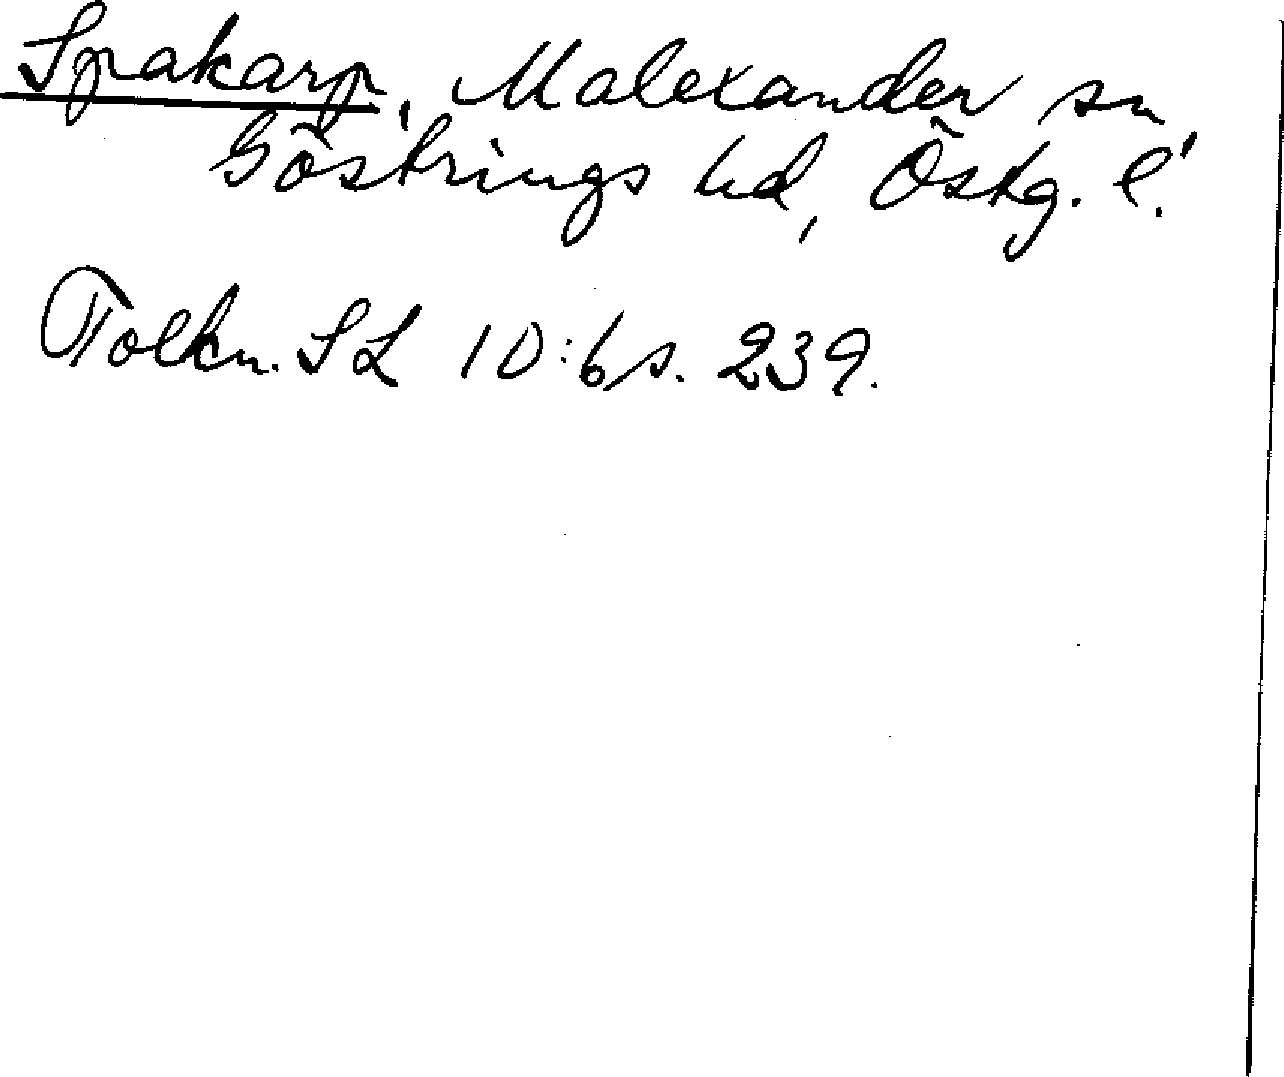 Spakarp, Malexander sn,
Göstrings hd, Östg. l.
Folkn. SL 10:6 s. 239.